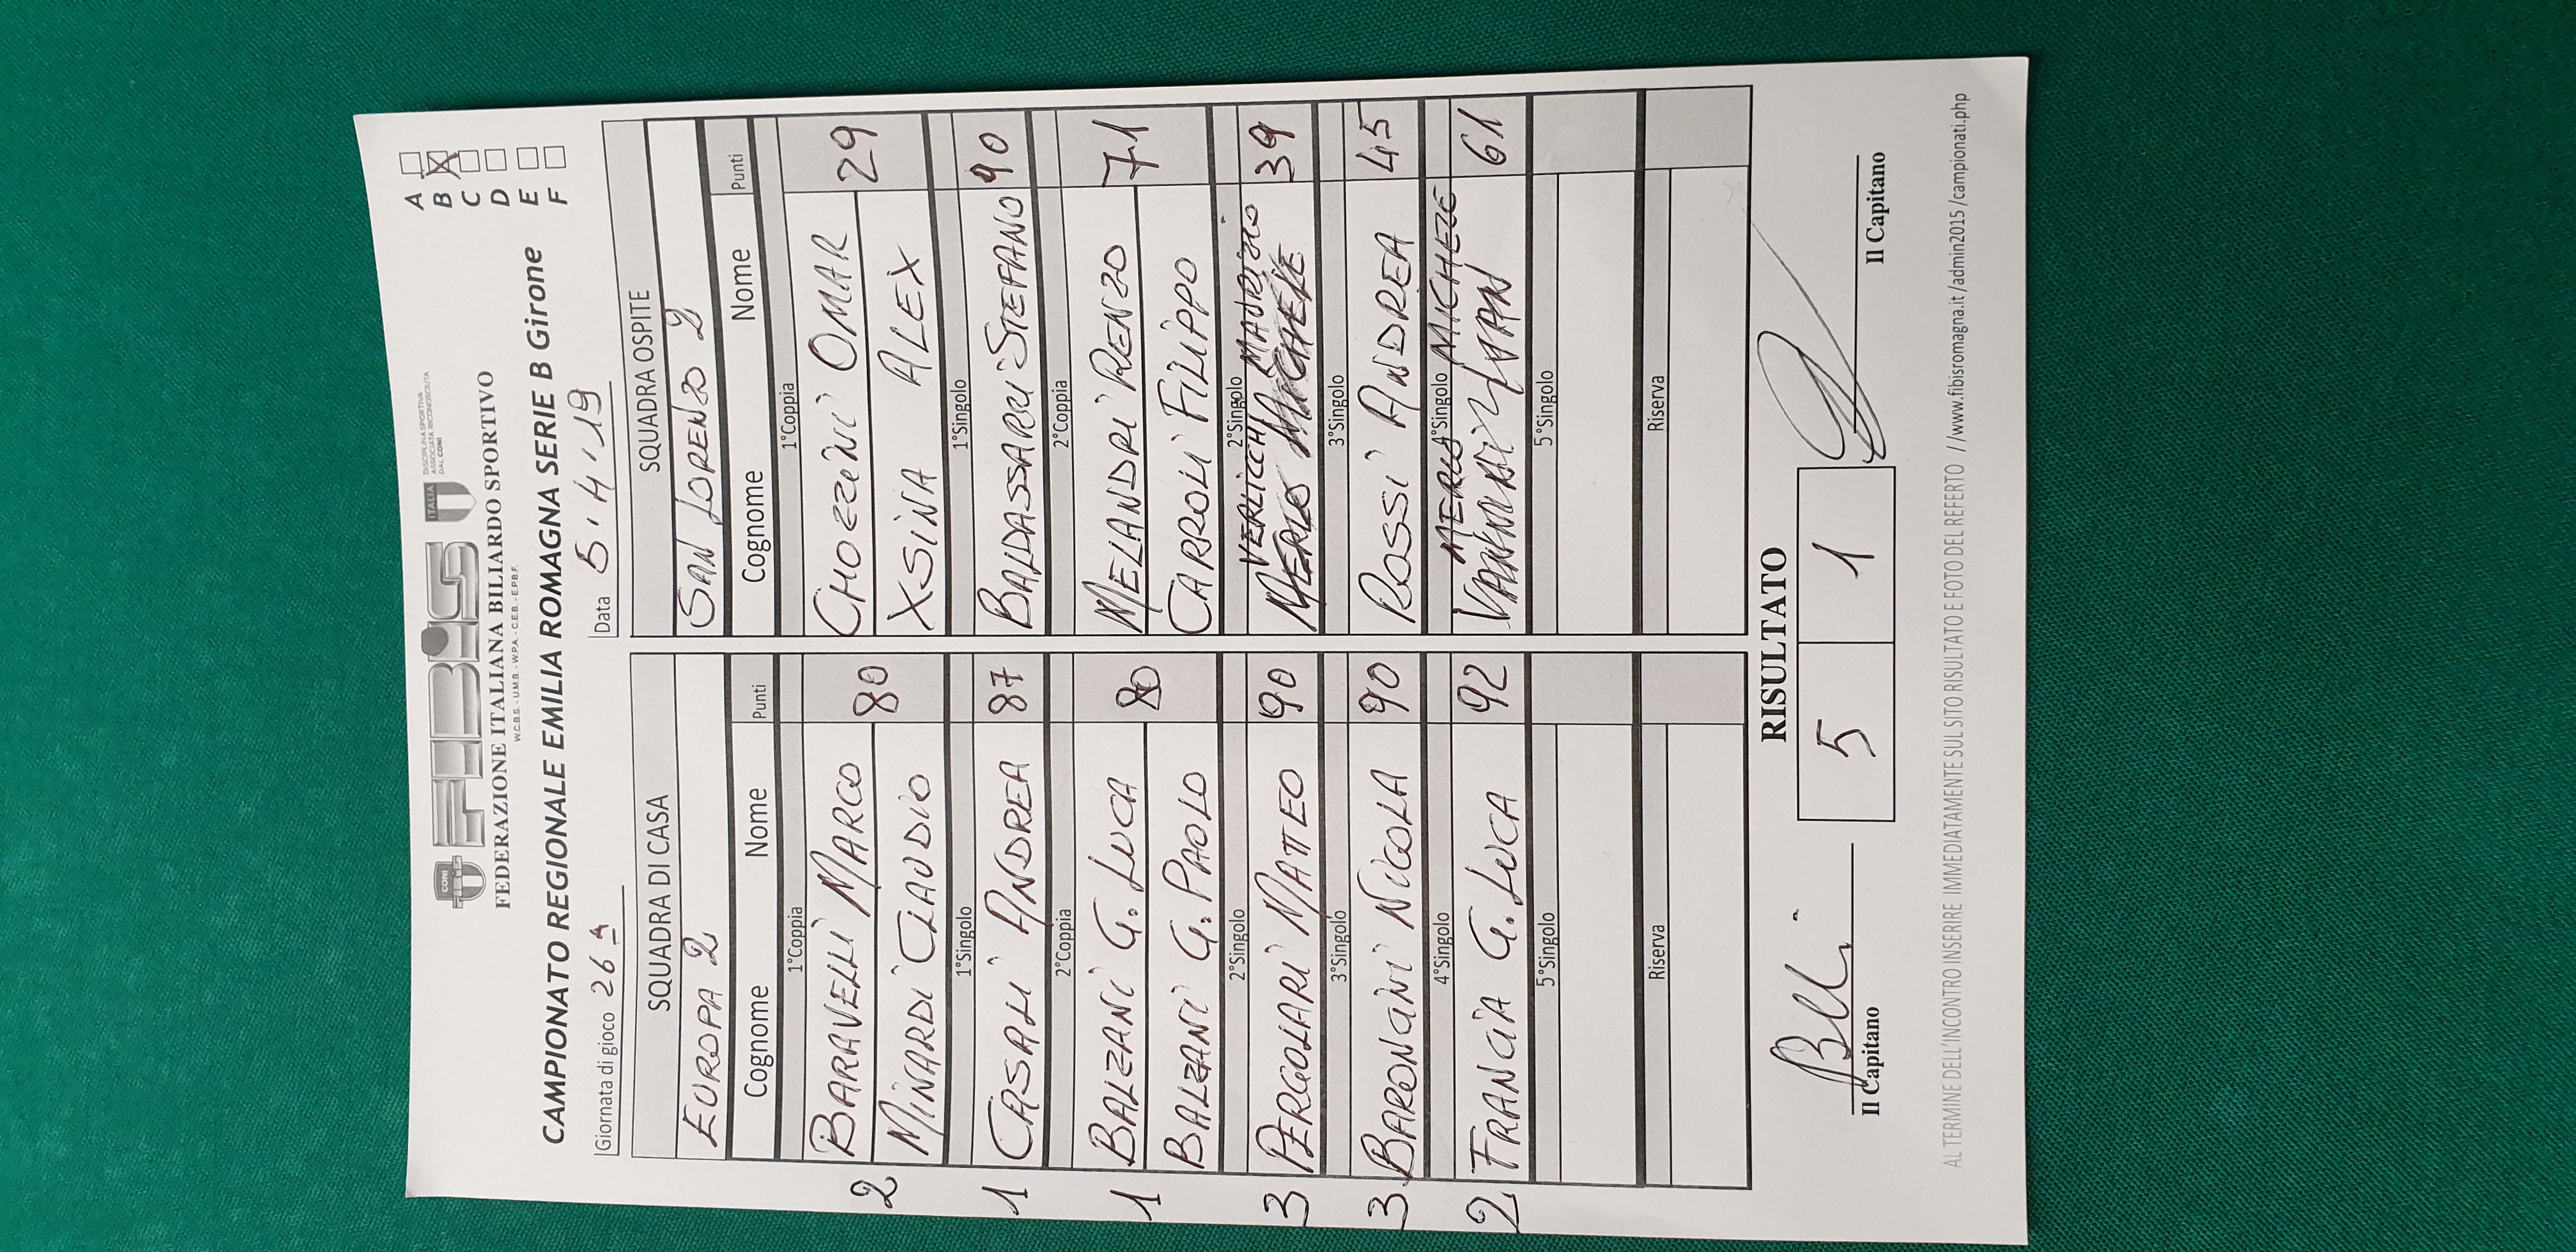 CONI FIBiS ITALIA DISCIPLINA SPORTIVA
ASSOCIATA RICONOSCIUTA
DAL CONI
FEDERAZIONE ITALIANA BILIARDO SPORTIVO
W.C.B.S. - U.M.B. - W.P.A. - C.E.B. - E.P.B.F.
CAMPIONATO REGIONALE EMILIA ROMAGNA SERIE B Girone
A
B X
C
D
E
F
Giornata di gioco 26 A
Data 5.4.19
SQUADRA DI CASA
EUROPA 2
Cognome Nome Punti
1°Coppia
2 BARAVELLI MARCO 80
MINARDI CLAUDIO
1°Singolo
1 CASALI ANDREA 87
2°Coppia
1 BALZANI G. LUCA 80
BALZANI G. PAOLO
2°Singolo
3 PERGOLARI MATTEO 90
3°Singolo
3 BARONCINI NICOLA 90
4°Singolo
2 FRANCIA G. LUCA 92
5°Singolo
Riserva
SQUADRA OSPITE
SAN LORENZO 2
Cognome Nome Punti
1°Coppia
GHOZZINI OMAR 29
XSINA ALEX
1°Singolo
BALDASSARRI STEFANO 90
2°Coppia
MELANDRI RENZO 71
CARROLI FILIPPO
2°Singolo
VERLICCHI MAURIZIO
MERLO MICHELE 39
3°Singolo
ROSSI ANDREA 45
4°Singolo
MERLO MICHELE
VANNINI IVAN 61
5°Singolo
Riserva
RISULTATO
5 1
Il Capitano
Il Capitano
AL TERMINE DELL'INCONTRO INSERIRE IMMEDIATAMENTE SUL SITO RISULTATO E FOTO DEL REFERTO //www.fibisromagna.it/admin2015/campionati.php